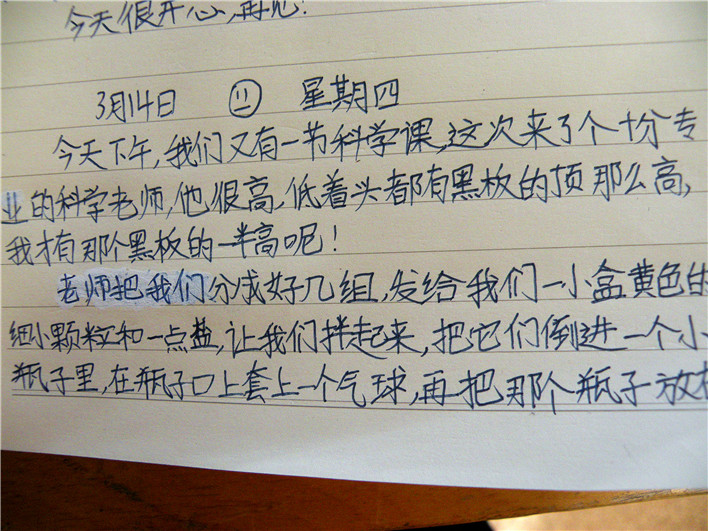 今天很开心,再见!
3月14日 星期四
今天下午,我们又有一节科学课,这次来了个十分专
业的科学老师,他很高,低着头都有黑板的顶那么高,
我才有那个黑板的一半高呢!
老师把我们分成好几组,发给我们一小盒黄色的
细小颗粒和一点盐,让我们拌起来,把它们倒进一个小
瓶子里,在瓶子口上套上一个气球,再把那个瓶子放在